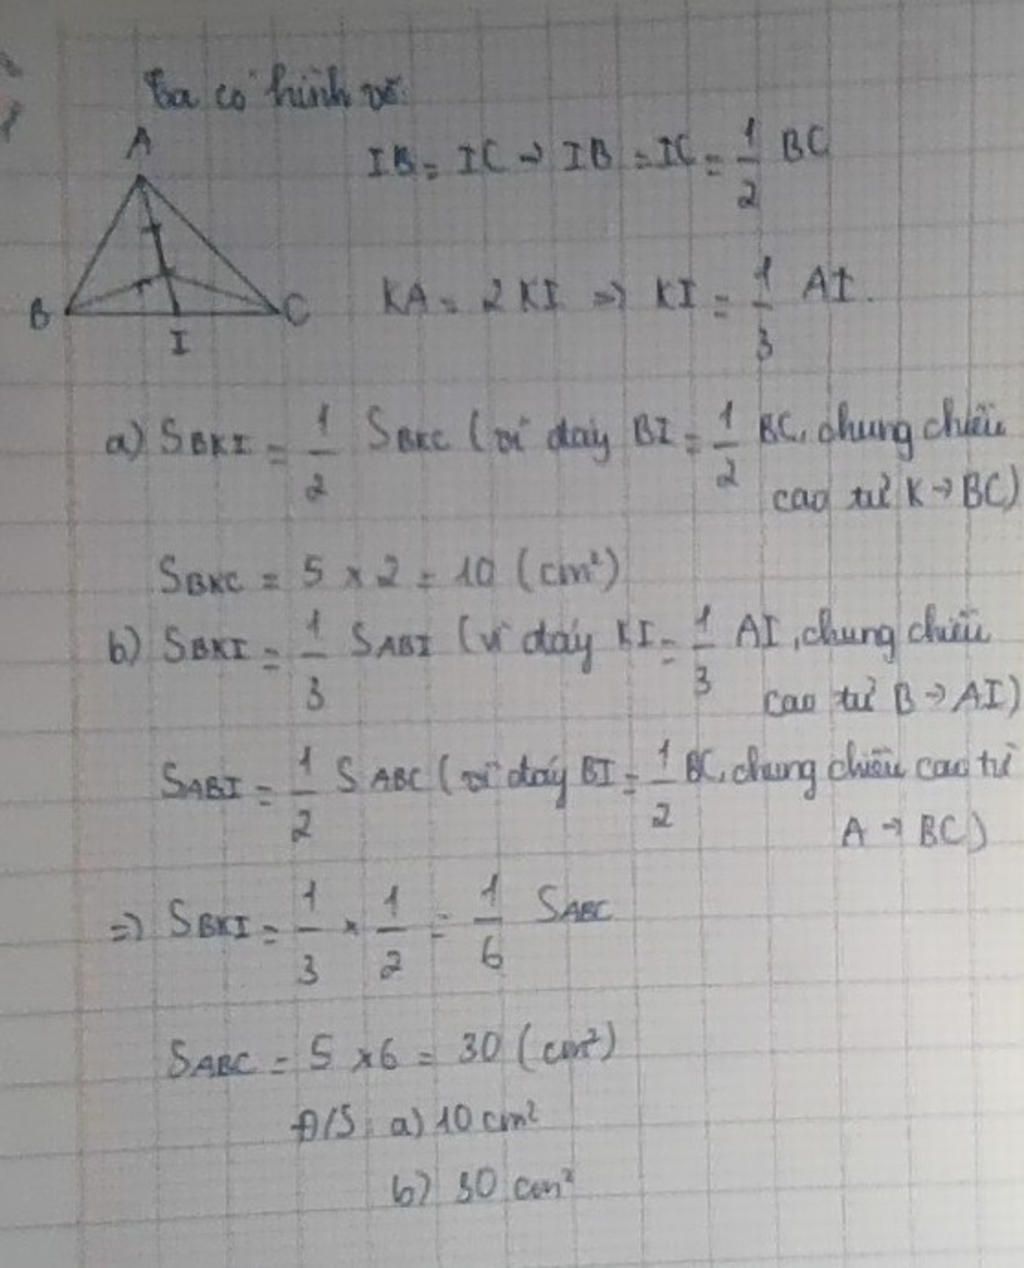 Ta có hình vẽ:
A
IB = IC → IB = IC = 1/2 BC
KA = 2 KI => KI = 1/3 AI.
B C
I
a) SBKI = 1/2 SBKC (vì đáy BI = 1/2 BC, chung chiều
cao từ K → BC)
SBKC = 5 x 2 = 10 (cm²)
b) SBKI = 1/3 SABI (vì đáy KI = 1/3 AI, chung chiều
cao từ B → AI)
SABI = 1/2 SABC (vì đáy BI = 1/2 BC, chung chiều cao từ
A → BC)
=> SBKI = 1/3 x 1/2 = 1/6 SABC
SABC = 5 x 6 = 30 (cm²)
Đ/S: a) 10 cm²
b) 30 cm²